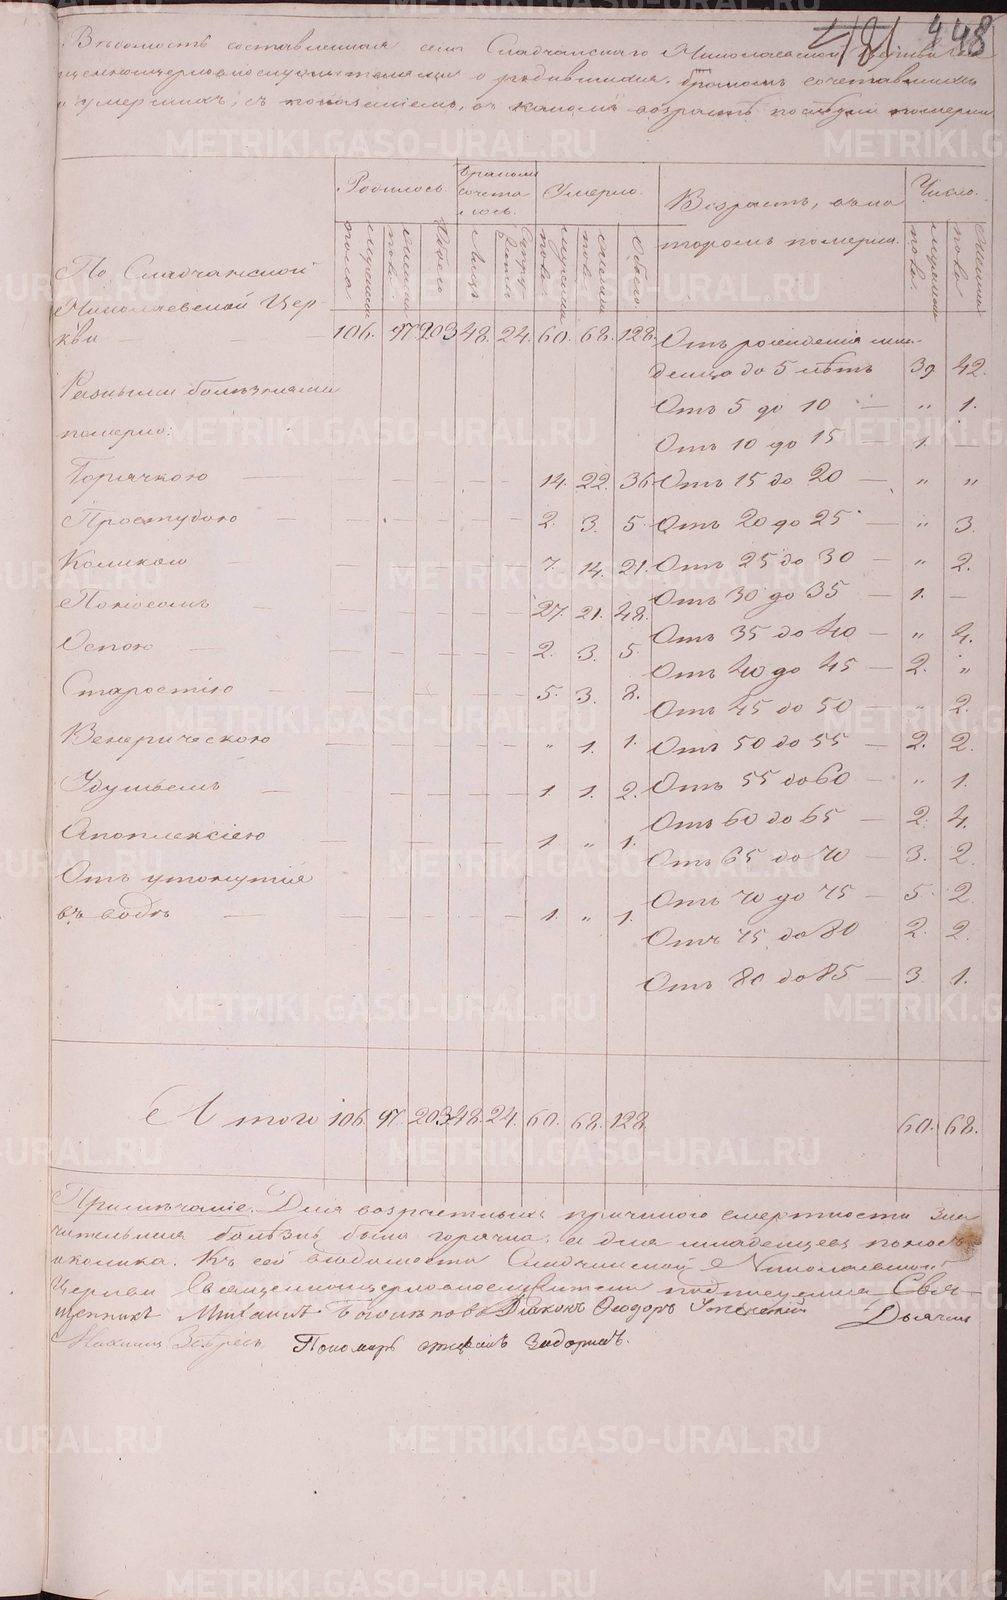 448
Вѣдомость составленная села Сладчанскаго Николаевской Церкви
священноцерковнослужителями о родившихся, бракомъ сочетавшихся
и умершихъ, съ показаніемъ, въ какомъ возрастѣ померли
Родилось. Бракомъ сочеталось. Умерло. Возрастъ, въ ко Число.
мужеска пола женска пола Обоего Лицъ мужеска пола женска пола Обоего. тѣромъ померли. мужеска пола женска пола
По Сладчанской
Николаевской Цер-
кви — 106. 97 203 48. 24. 60. 68. 128. Отъ рожденія мла-
денца до 5 лѣтъ 39 42.
Разными болѣзнями
Отъ 5 до 10 — „ 1.
померло:
Отъ 10 до 15 — 1. —
Горячкою — 14. 22. 36 Отъ 15 до 20 — „ „
Простудою — 2. 3. 5. Отъ 20 до 25 — „ 3.
Коликою — 7. 14. 21. Отъ 25 до 30 — „ 2.
Поносомъ — 27. 21. 48. Отъ 30 до 35 — 1. —
Оспою — 2. 3. 5. Отъ 35 до 40 — „ 4.
Отъ 40 до 45 — 2. „
Старостію — 5. 3. 8. Отъ 45 до 50 — „ 2.
Венерическою — „ 1. 1. Отъ 50 до 55 — 2. 2.
Удушьемъ — 1. 1. 2. Отъ 55 до 60 — „ 1.
Апоплексіею — 1 „ 1. Отъ 60 до 65 — 2. 4.
Отъ 65 до 70 — 3. 2.
Отъ утонутія
въ водѣ — 1. „ 1. Отъ 70 до 75 — 5. 2.
Отъ 75 до 80 2. 2.
Отъ 80 до 85 — 3 1.
Итого 106. 97. 203 48. 24. 60. 68. 128. 60. 68.
Примѣчаніе. Для возрастныхъ причиною смертности зна
чительная болѣзнь была горячка, а для младенцевъ поносъ
и колика. Къ сей вѣдомости Сладчанской Николаевской
Церкви Священноцерковнослужители подписуемся Свя-
щенникъ Михаилъ Діаконъ Ѳеодоръ Дьячекъ
Пономарь
METRIKI.GASO-URAL.RU